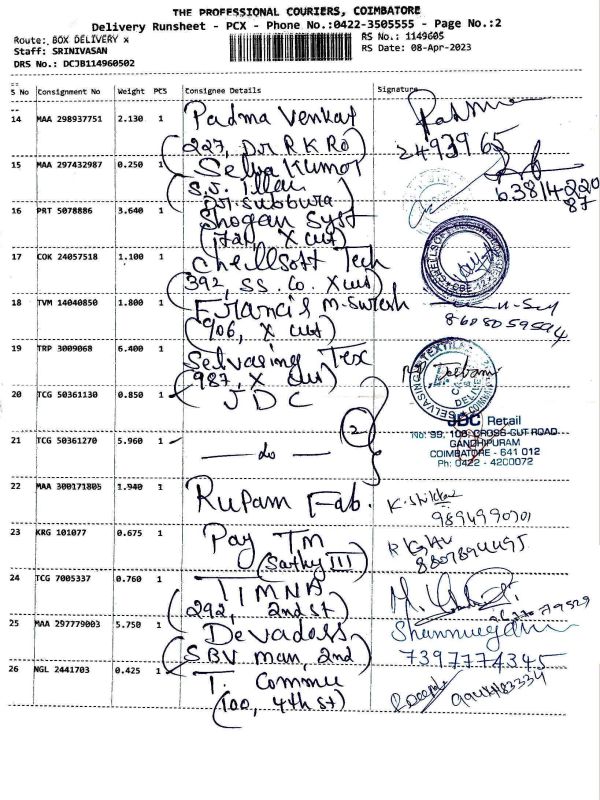 THE PROFESSIONAL COURIERS, COIMBATORE
Delivery Runsheet - PCX - Phone No.:0422-3505555 - Page No.:2
Route: BOX DELIVERY x
RS No.: 1149605
Staff: SRINIVASAN
RS Date: 08-Apr-2023
DRS No.: DCJB114960502
S No Consignment No Weight PCS Consignee Details Signature
14 MAA 298937751 2.130 1 Padma Venkat
(227, Dr R K Ro)
2493965
15 MAA 297432987 0.250 1 Selva Kumar
Dr. Subbura)
16 PRT 5078886 3.640 1 Shogan Syst
X cut)
17 COK 24057518 1.100 1 Chellsoft Tech
(392, S.S. Co. X cut)
18 TVM 14040850 1.800 1 Francis M. Suresh
(906, X cut)
19 TRP 3009068 6.400 1 Selvasing Tex
(987, X cut)
20 TCG 50361130 0.850 1 JDC
2
JDC Retail
No: 99, 100, CROSS-CUT ROAD
GANDHIPURAM
COIMBATORE - 641 012
Ph: 0422 - 4200072
21 TCG 50361270 5.960 1 — do —
22 MAA 300171805 1.940 1 Rupam Fab.
23 KRG 101077 0.675 1 Pay TM
(Sathy III)
24 TCG 7005337 0.760 1 TIMNA
(292, 2nd st)
25 MAA 297779003 5.750 1 Devadoss
(SBV Man, 2nd)
7397774345
26 NGL 2441703 0.425 1 T. Commu
(100, 4th st)